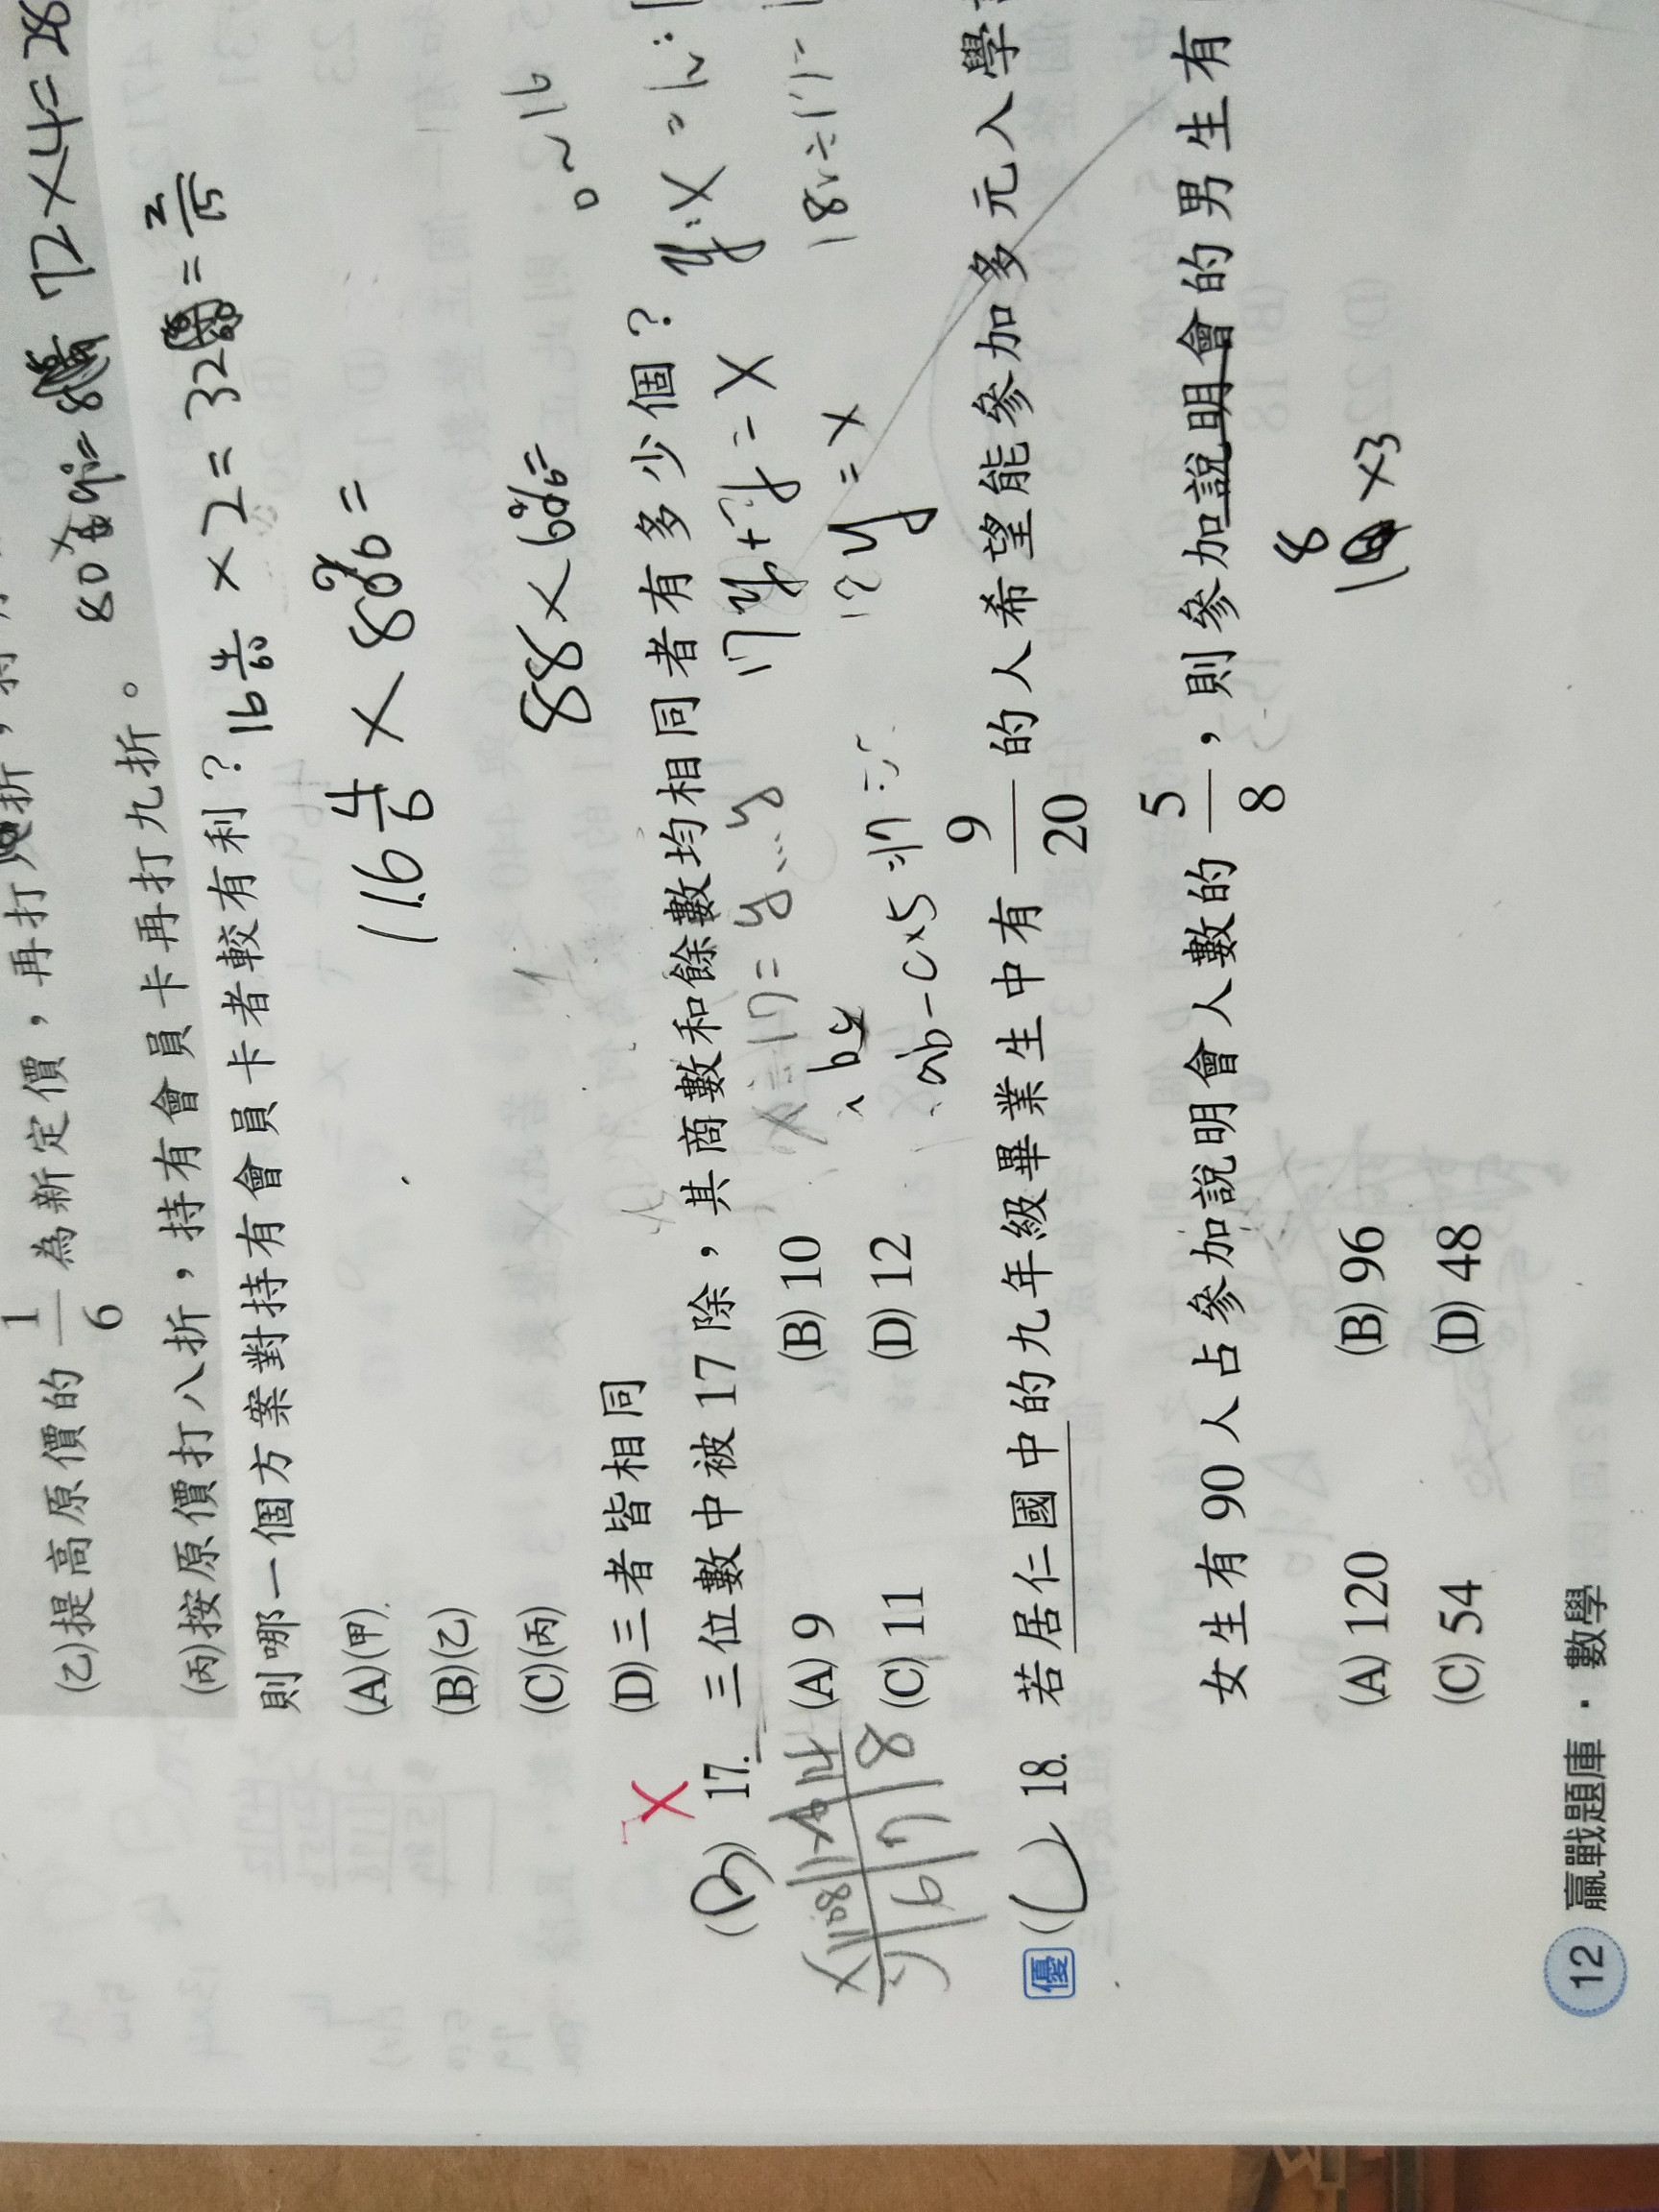 72×4=28
(乙)提高原價的 1/6 為新定價，再打
80×
(丙)按原價打八折，持有會員卡再打九折。
則哪一個方案對持有會員卡者較有利？
×2=32 = 2/15
(A)(甲)
116 4/6 × 80% =
(B)(乙)
(C)(丙)
88×
0~16
(D)三者皆相同
(B) 17. 三位數中被 17 除，其商數和餘數均相同者有多少個？
x÷17=y…y
17y+y=x
(A) 9 (B) 10
(C) 11 (D) 12
18y=x
x 108 126 144
y 6 7 8
優 ( ) 18. 若居仁國中的九年級畢業生中有 9/20 的人希望能參加多元入學
女生有 90 人占參加說明會人數的 5/8，則參加說明會的男生有
18×3
(A) 120 (B) 96
(C) 54 (D) 48
12 贏戰題庫・數學